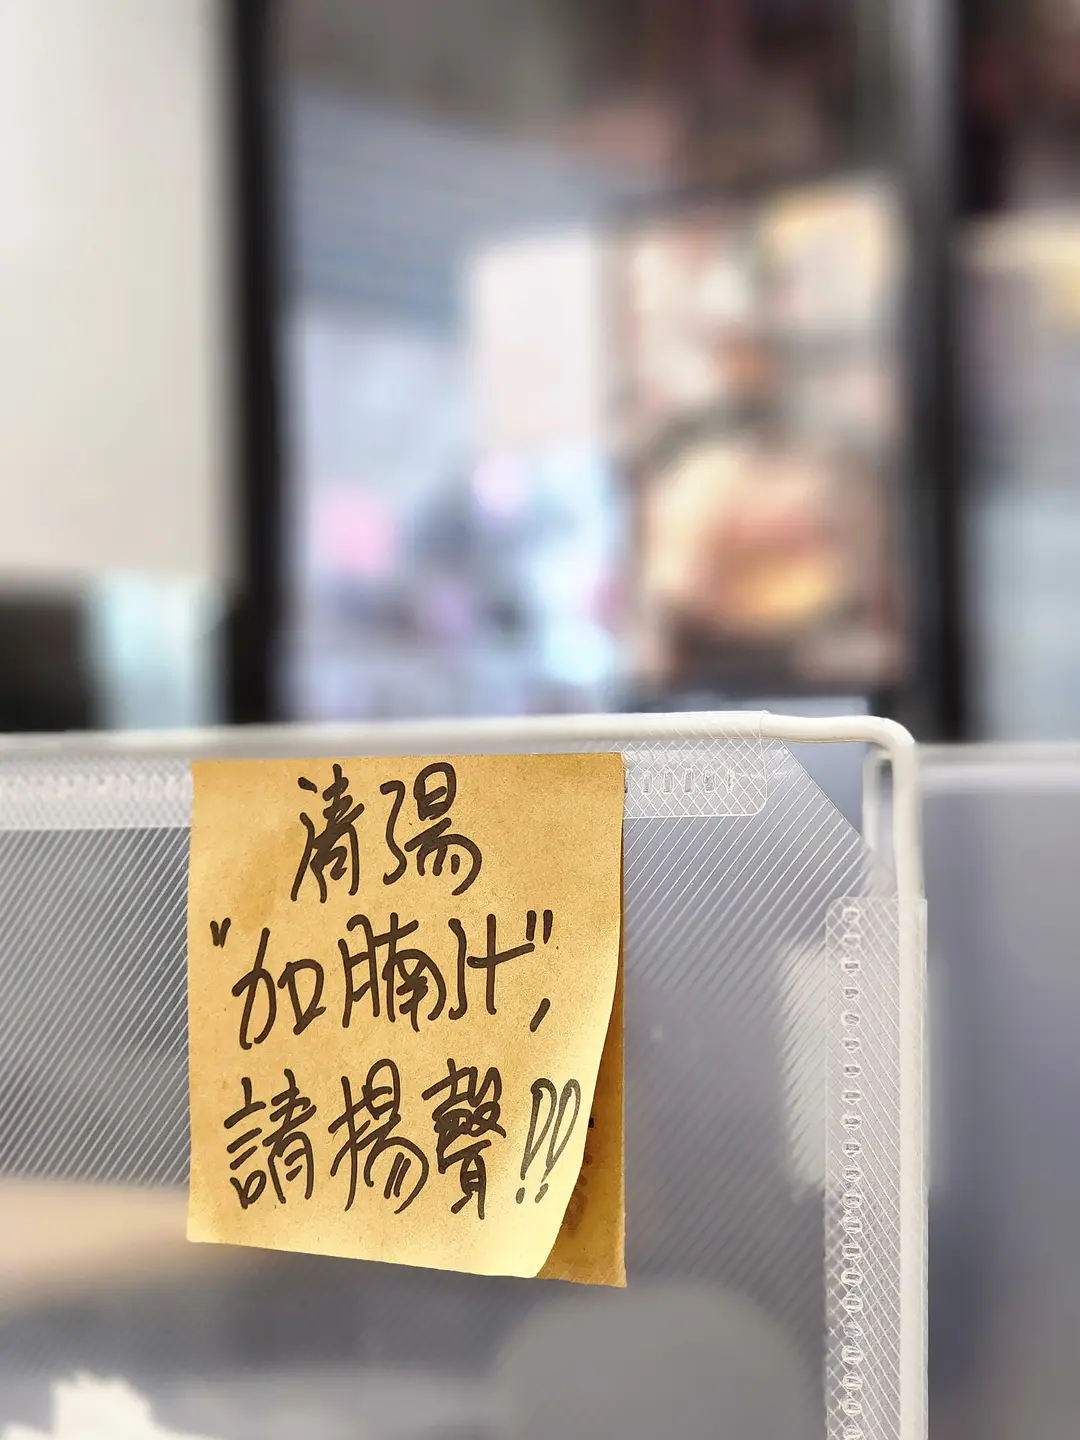 清湯
"加腩汁",
請揚聲!!